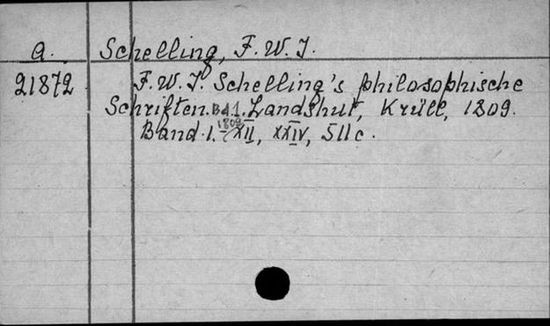 a. Schelling, F. W. J.
21872 F. W. J. Schelling's philosophische
Schriften. Bd 1. Landshut, Krüll, 1809.
1809
Band I. XII, XXIV, 511 c.